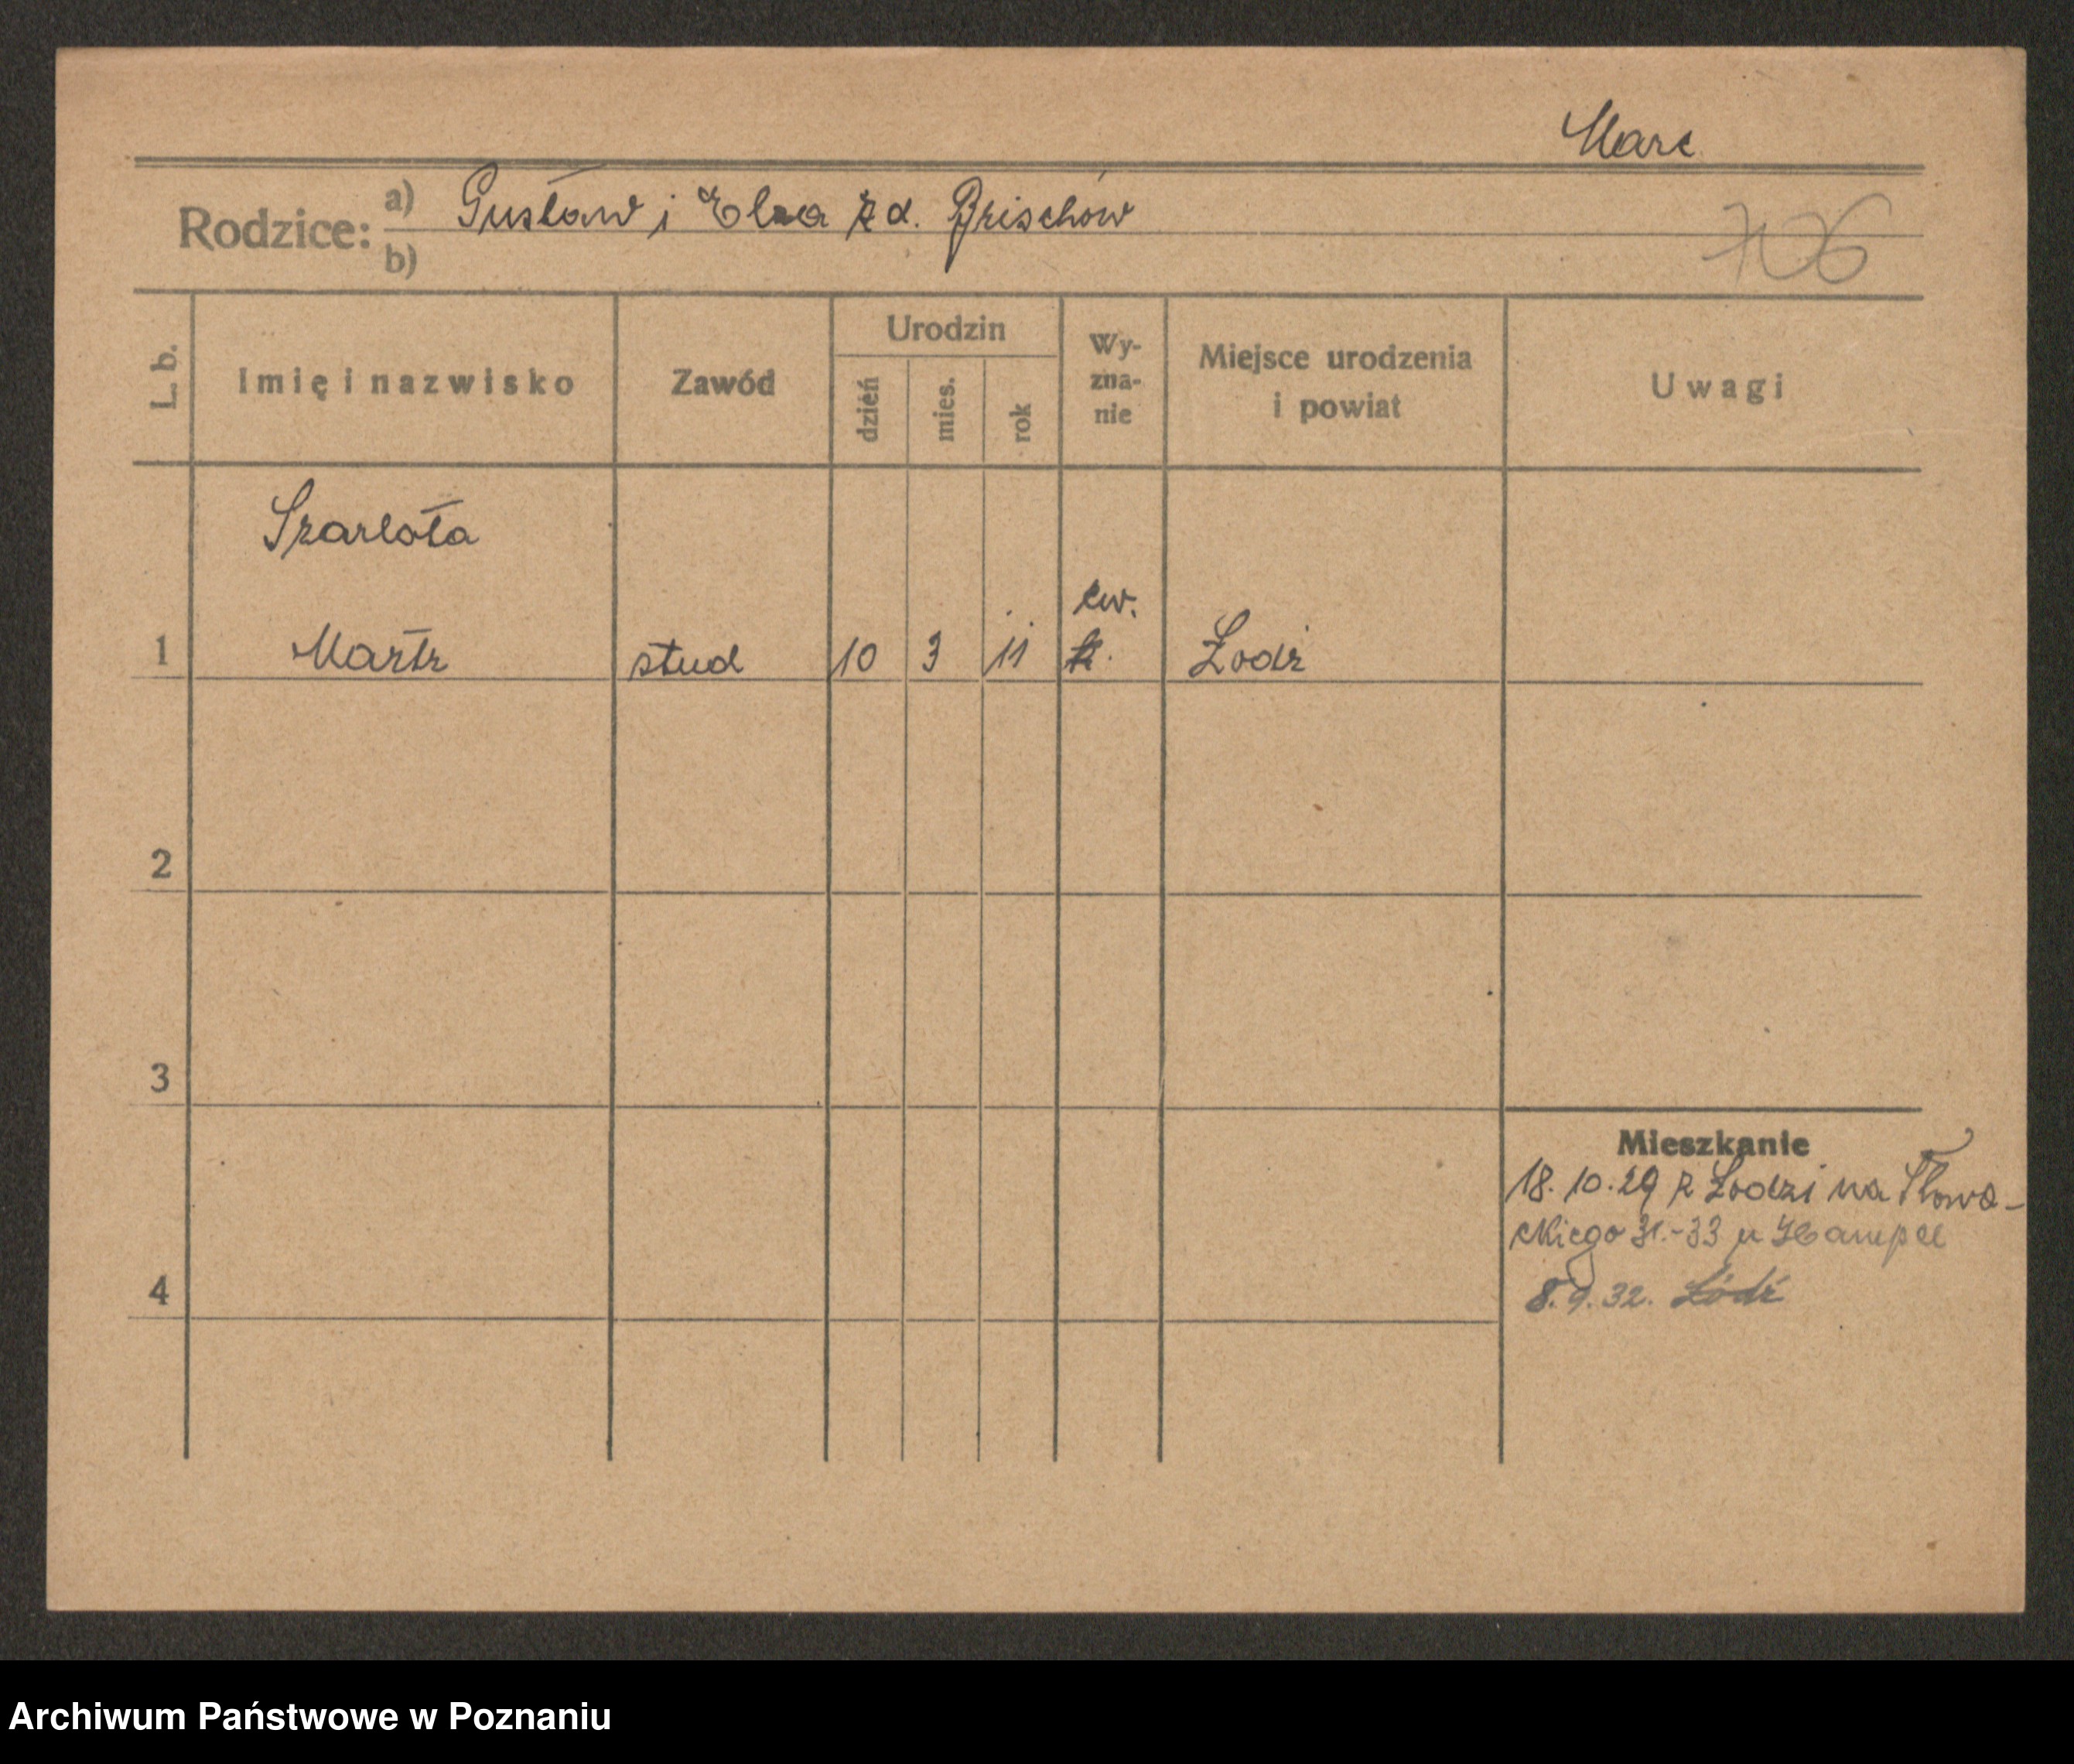 Marc
Rodzice: a) Gustaw i Elza z d. Brischów
b)
706
L. b.
Imię i nazwisko
Zawód
Urodzin
dzień
mies.
rok
Wy-
zna-
nie
Miejsce urodzenia
i powiat
Uwagi
Szarlota
ew.
1 stud 10 3 11 k. Łodź
2
3
Mieszkanie
18.10.29 z Łodzi na Słowa-
ckiego 31-33 u Hampel
4
8.9.32. Łódź
Archiwum Państwowe w Poznaniu